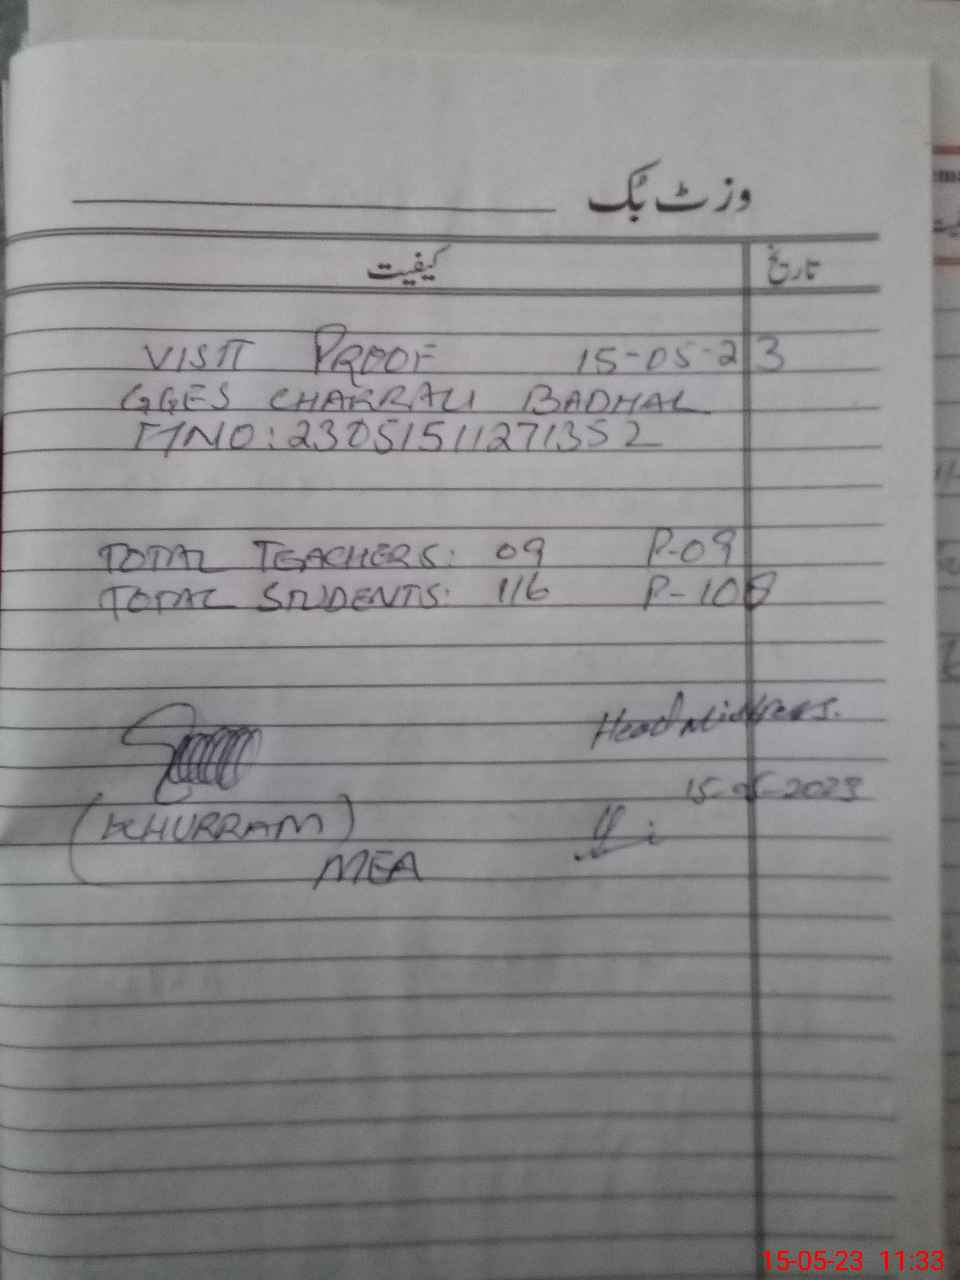 وزٹ بک
کیفیت تاریخ
VISIT PROOF 15-05-23
GGES CHAKRALI BADHAL
M NO: 23051511271352
TOTAL TEACHERS: 09 P-09
TOTAL STUDENTS: 116 P-108
Head Mistress.
15-05-2023
(KHURRAM)
MEA
15-05-23 11:33